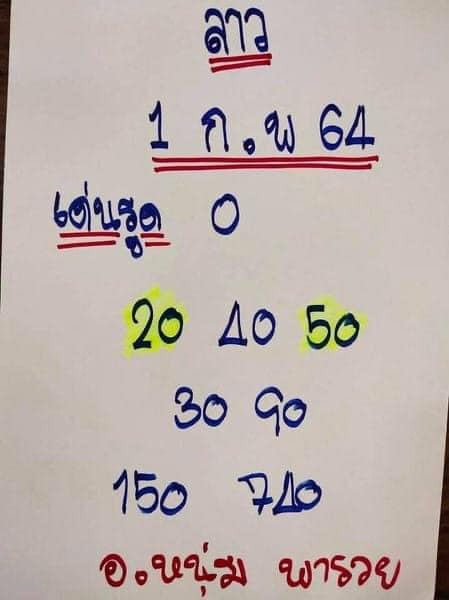 ลาว
1 ก.พ 64
เด่นรูด 0
20 40 50
30 90
150 740
อ.หนุ่ม พารวย